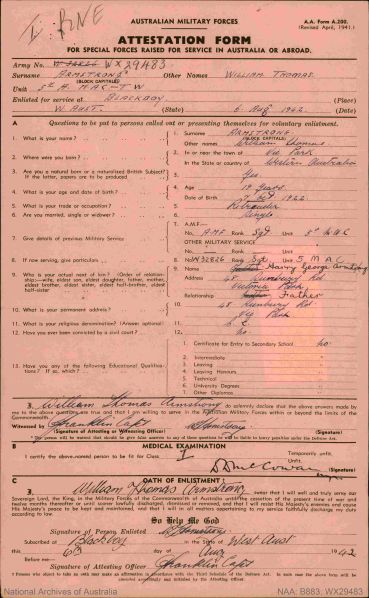 AUSTRALIAN MILITARY FORCES
A.A. Form A.200.
(Revised April, 1941.)
ATTESTATION FORM
FOR SPECIAL FORCES RAISED FOR SERVICE IN AUSTRALIA OR ABROAD.
Army No. WX29483
Surname ARMSTRONG Other Names WILLIAM THOMAS.
(BLOCK CAPITALS)
Unit
Enlisted for service at BLACKBOY (Place)
W AUST. (State) 6 Aug 1942 (Date)
A Questions to be put to persons called out or presenting themselves for voluntary enlistment.
1. What is your name? 1. Surname ARMSTRONG
(BLOCK CAPITALS)
Other names William Thomas
2. Where were you born? 2. In or near the town of Vic Park
In the State or country of Western Australia
3. Are you a natural born or a naturalised British Subject? If the latter, papers are to be produced 3. Yes
4. What is your age and date of birth? 4. Age 19 Years
Date of Birth 1922
5. What is your trade or occupation? 5.
6. Are you married, single or widower? 6. Single
7. Give details of previous Military Service 7. A.M.F.—
No. AMF Rank Sgt Unit
OTHER MILITARY SERVICE
No. Rank Unit
8. If now serving, give particulars 8. No W32826 Rank Sgt Unit 5 M A C
9. Who is your actual next of kin? (Order of relationship—wife, eldest son, eldest daughter, father, mother, eldest brother, eldest sister, eldest half-brother, eldest half-sister 9. Name Harry George Armstrong
Address 48 Bunbury Rd
Victoria Park
Relationship Father
10. What is your permanent address? 10. 48 Bunbury Rd
Vic Park
11. What is your religious denomination? (Answer optional) 11. C. E.
12. Have you ever been convicted by a civil court? 12. No
13. Have you any of the following Educational Qualifications? If so, which?
1. Certificate for Entry to Secondary School no.
2. Intermediate
3. Leaving
4. Leaving Honours
5. Technical
6. University Degrees
7. Other Diplomas
I, William Thomas Armstrong do solemnly declare that the above answers made by me to the above questions are true and that I am willing to serve in the Australian Military Forces within or beyond the limits of the Commonwealth.
Witnessed by Franklin Capt
(Signature of Attesting or Witnessing Officer) (Signature)
B MEDICAL EXAMINATION
I certify the above-named person to be fit for Class I
Temporarily unfit.
Unfit.
C OATH OF ENLISTMENT
I, William Thomas Armstrong swear that I will well and truly serve our Sovereign Lord, the King, in the Military Forces of the Commonwealth of Australia until the cessation of the present time of war and twelve months thereafter or until sooner lawfully discharged, dismissed or removed, and that I will resist His Majesty's enemies and cause His Majesty's peace to be kept and maintained, and that I will in all matters appertaining to my service faithfully discharge my duty according to law.
So Help Me God
Signature of Person Enlisted
Subscribed at Blackboy in the State of West Aust
this 6th day of Aug 1942
Before me—
Signature of Attesting Officer Franklin Capt
National Archives of Australia
NAA: B883, WX29483